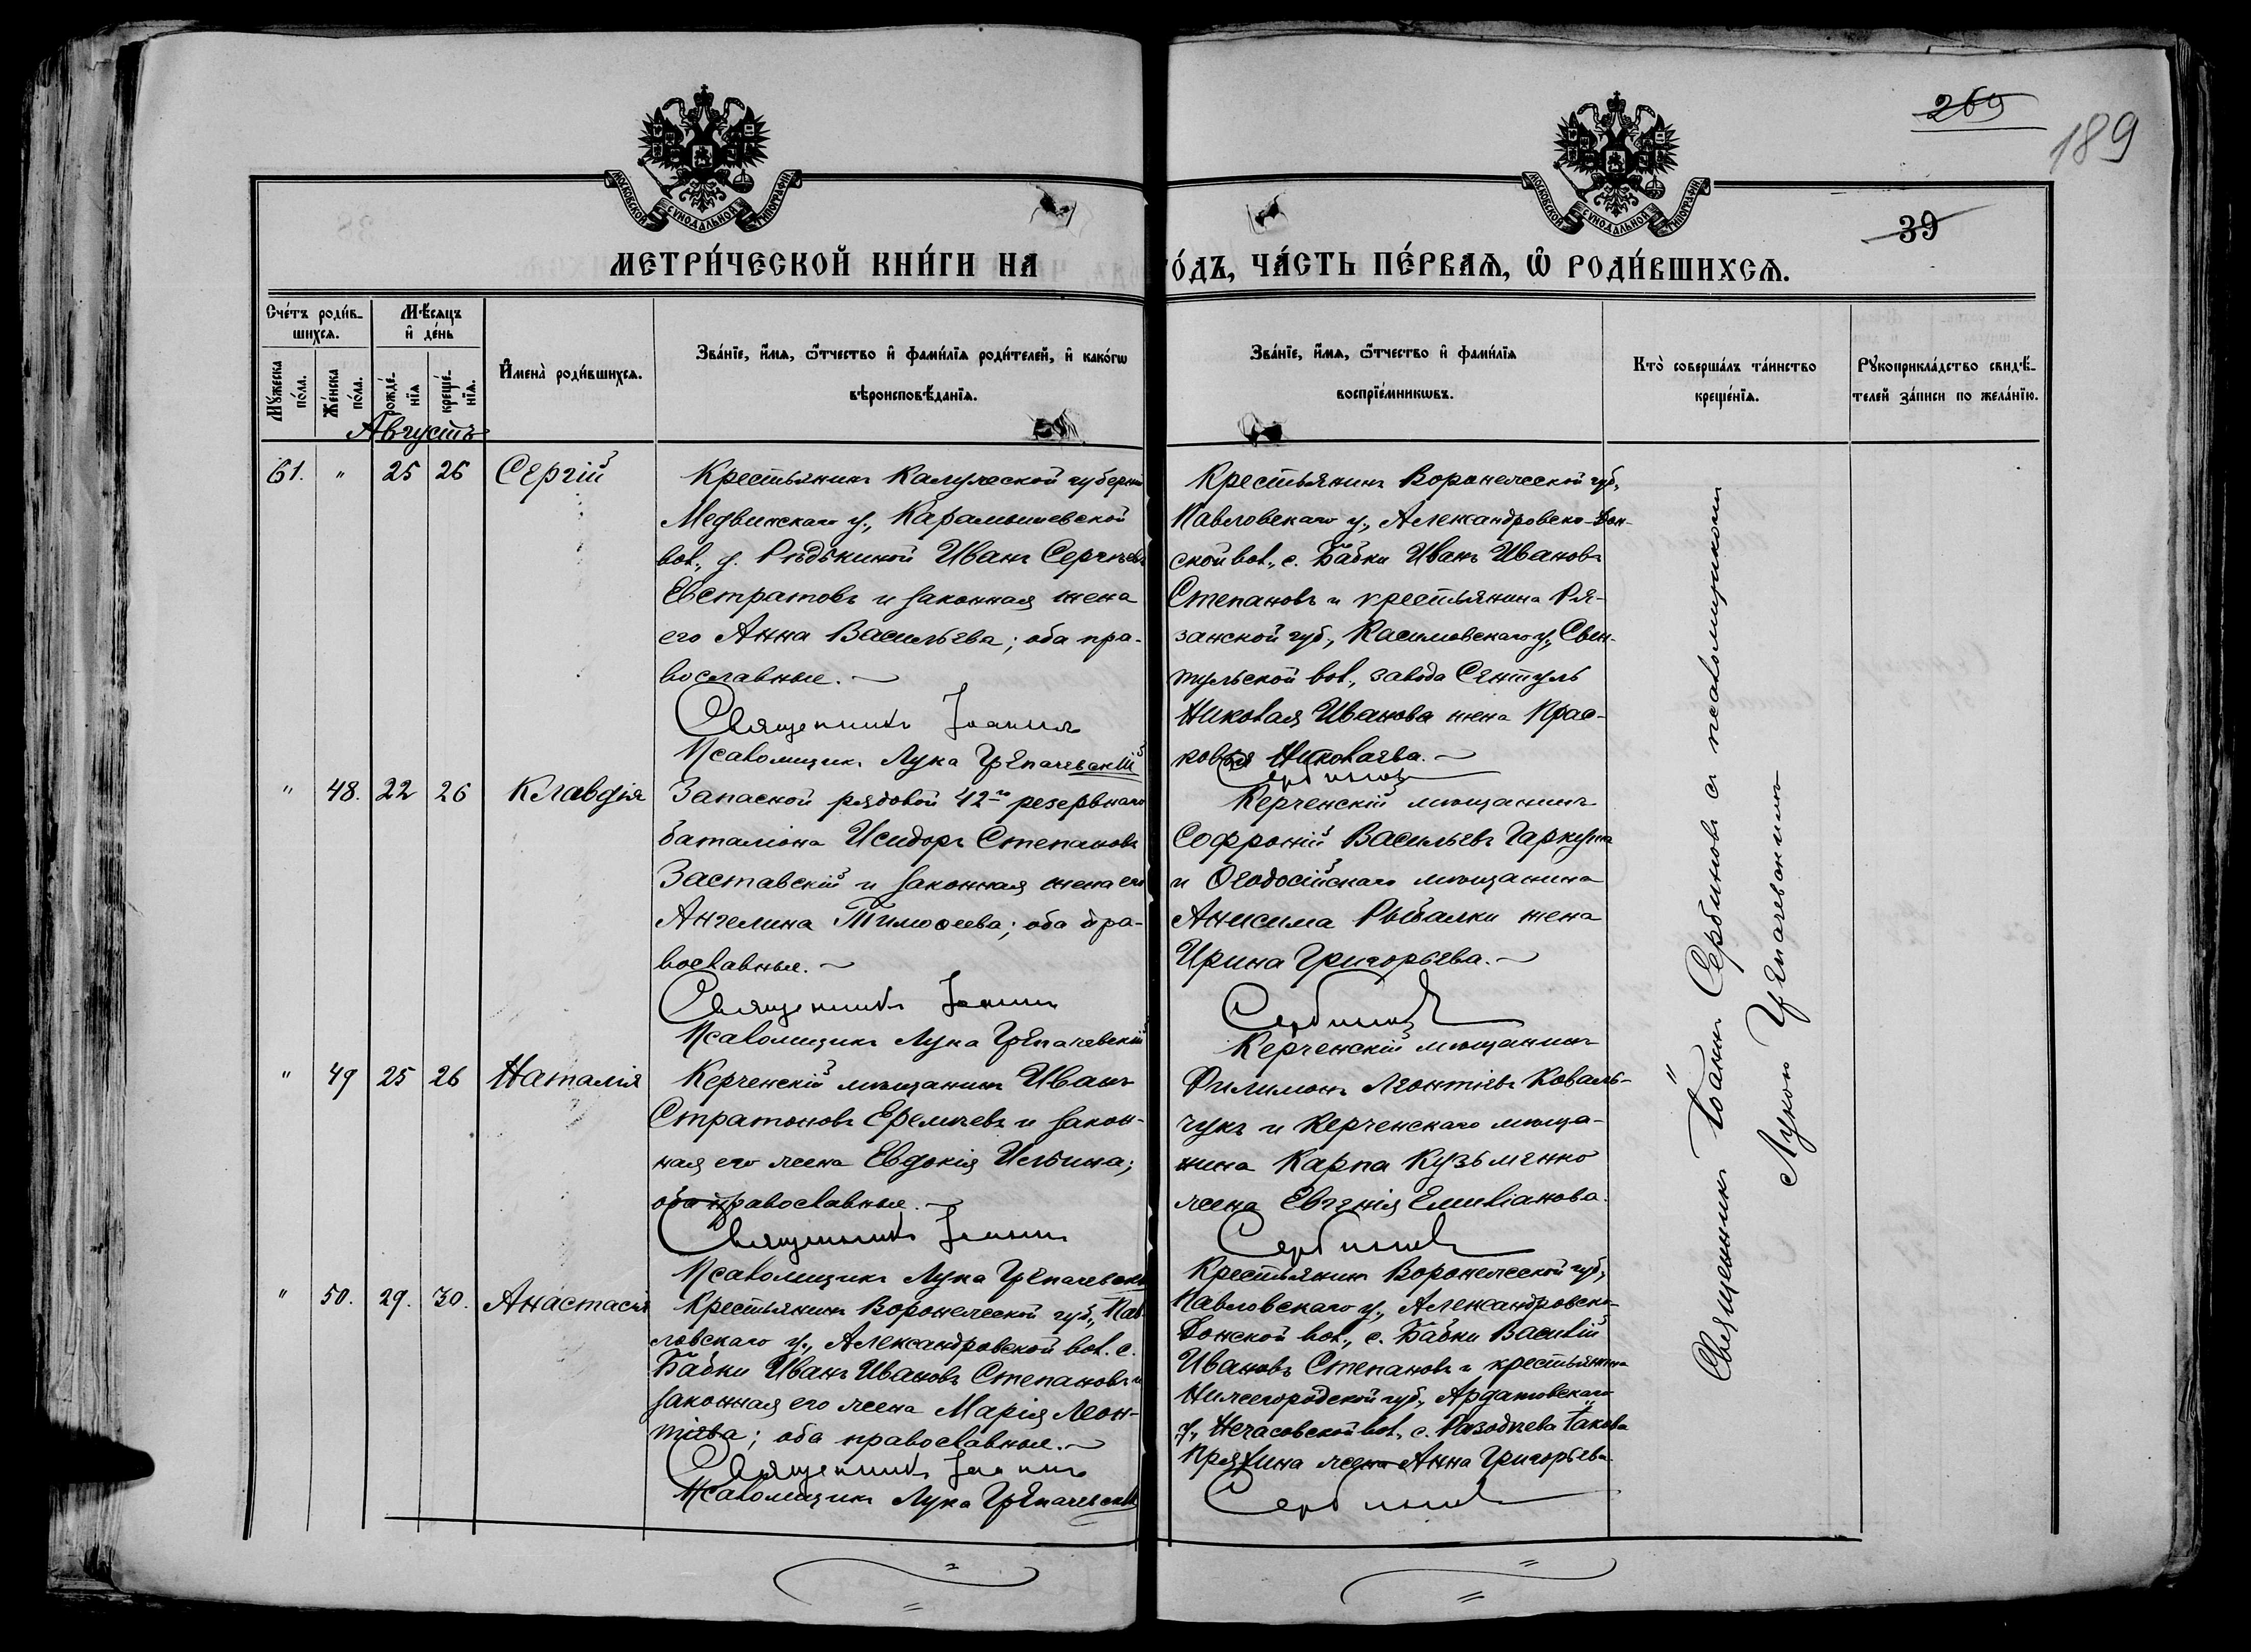 269
189
МОСКОВСКОЙ СѴНОДАЛЬНОЙ ТИПОГРАФІИ
МОСКОВСКОЙ СѴНОДАЛЬНОЙ ТИПОГРАФІИ
39
МЕТРИ́ЧЕСКОЙ КНИ́ГИ НА
ГО́ДЪ, ЧА́СТЬ ПЕ́РВАѦ, Ѡ҆ РОДИ́ВШИХСѦ.
Сче́тъ роди́в-
шихсѧ.
Мꙋ́жеска
по́ла.
Же́нска
по́ла.
Мѣ́сѧцъ
и҆ де́нь
рожде́-
нїѧ
креще́-
нїѧ.
И҆мена̀ роди́вшихсѧ.
Зва́нїе, и҆́мѧ, ѻ҆́тчество и҆ фами́лїѧ роди́телей, и҆ како́гѡ
вѣроисповѣ́данїѧ.
Зва́нїе, и҆́мѧ, ѻ҆́тчество и҆ фами́лїѧ
воспрїе́мникѡвъ.
Кто̀ соверша́лъ та́инство
креще́нїѧ.
Рꙋкоприкла́дство свидѣ́-
телей за́писи по жела́нїю.
Августъ
61. " 25 26 Сергій
Крестьянинъ Калужской губерніи
Медынскаго у., Карамышевской
вол., д. Рѣдькиной Иванъ Сергѣевъ
Евстратовъ и законная жена
его Анна Васильева; оба пра-
вославные.
Священникъ Іоаннъ
Псаломщикъ Лука Цѣпачевскій
Крестьянинъ Воронежской губ.,
Павловскаго у., Александровско-Дон-
ской вол., с. Бабки Иванъ Ивановъ
Степановъ и крестьянина Ря-
занской губ., Касимовскаго у., Сын-
тульской вол., завода Сентулъ
Николая Иванова жена Прас-
ковья Николаева.
Сербиновъ
" 48. 22 26 Клавдія
Запасной рядовой 42го резервнаго
баталіона Исидоръ Степановъ
Заставскій и законная жена его
Ангелина Тимоѳеева; оба пра-
вославные.
Священникъ Іоаннъ
Псаломщикъ Лука Цѣпачевскій
Керченскій мѣщанинъ
Софроній Васильевъ Гаркуша
и Ѳеодосійскаго мѣщанина
Анисима Рыбалки жена
Ирина Григорьева.
Сербиновъ
" 49 25 26 Наталія
Керченскій мѣщанинъ Иванъ
Стратоновъ Еремѣевъ и закон-
ная его жена Евдокія Ильина;
оба православные.
Священникъ Іоаннъ
Псаломщикъ Лука Цѣпачевскій
Керченскій мѣщанинъ
Филимонъ Леонтіевъ Коваль-
чукъ и Керченскаго мѣща-
нина Карпа Кузьменко
жена Евгенія Емиліанова.
Сербиновъ
" 50. 29. 30. Анастасія
Крестьянинъ Воронежской губ., Пав-
ловскаго у., Александровской вол. с.
Бабки Иванъ Ивановъ Степановъ и
законная его жена Марія Леон-
тіева; оба православные.
Священникъ Іоаннъ
Псаломщикъ Лука Цѣпачевскій
Крестьянинъ Воронежской губ.,
Павловскаго у., Александровско-
Донской вол., с. Бабки Василій
Ивановъ Степановъ и крестьянина
Нижегородской губ., Ардатовскаго
у., вол., с. Іакова
жена Анна Григорьева
Сербиновъ
Священникъ Іоаннъ Сербиновъ съ псаломщикомъ
Лукою Цѣпачевскимъ